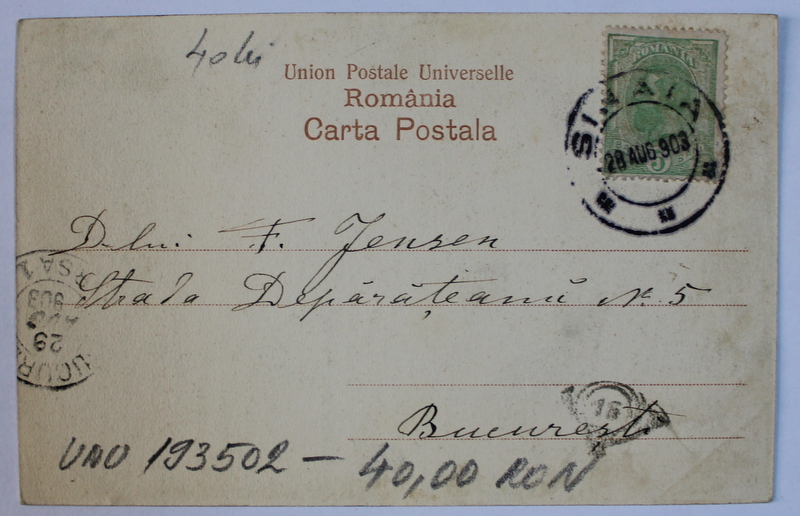 40 lei
Union Postale Universelle
România
Carta Postala
ROMANIA
5
SINAIA
28 AUG 903
D-lui F. Jensen
Strada Depărățeanu No. 5
Bucuresti
29 AUG 903
16
193502 — 40,00 RON